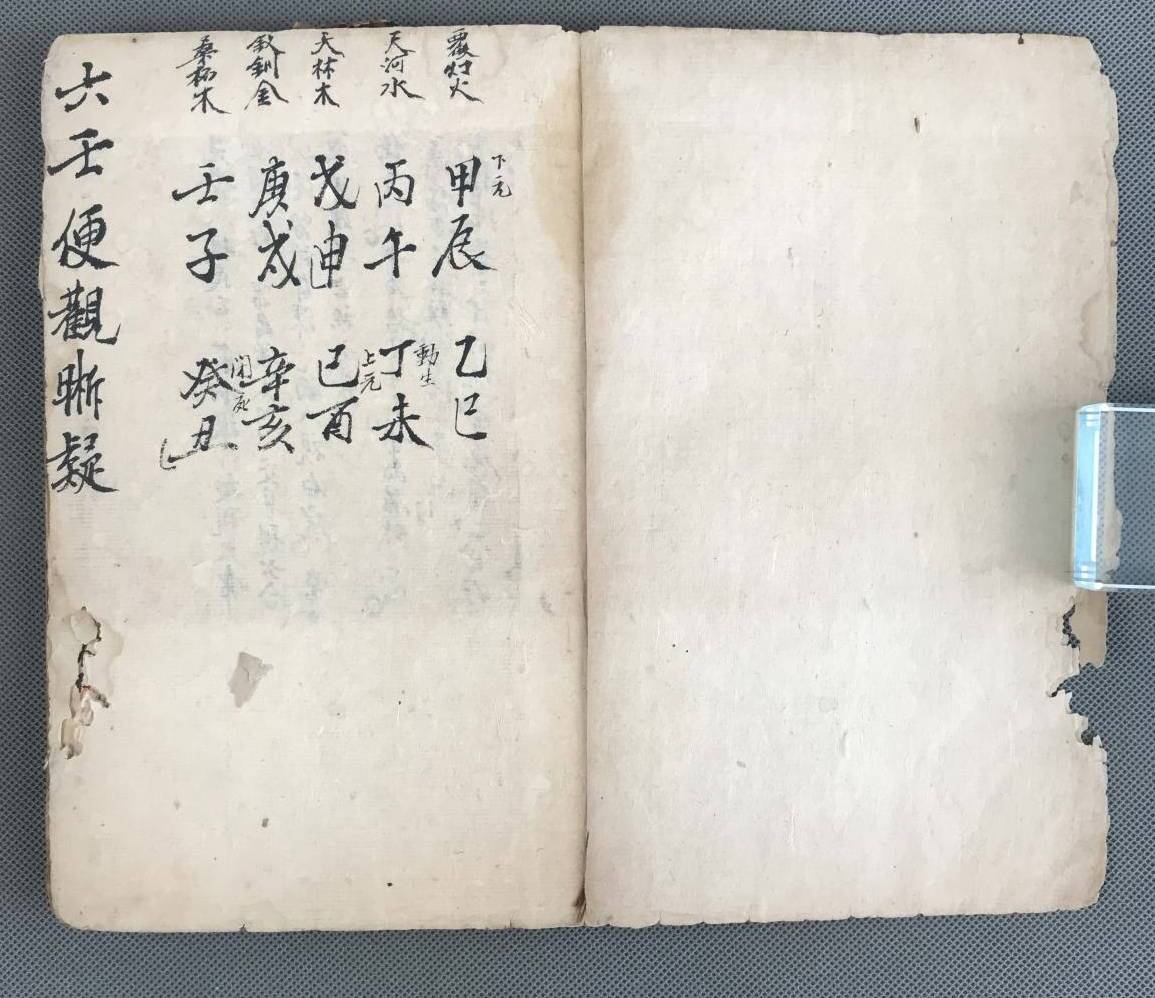 覆灯火
下元
甲辰 乙巳
動生
天河水
丙午 丁未
上元
大林木
戊申 己酉
釵釧金
庚戌 辛亥
死
桑柘木
壬子 癸丑
六壬便觀晰疑